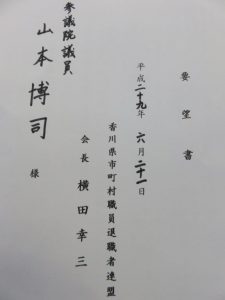 要望書
平成二十九年六月二十一日
香川県市町村職員退職者連盟
会長 横田幸三
参議院議員
山本博司 様